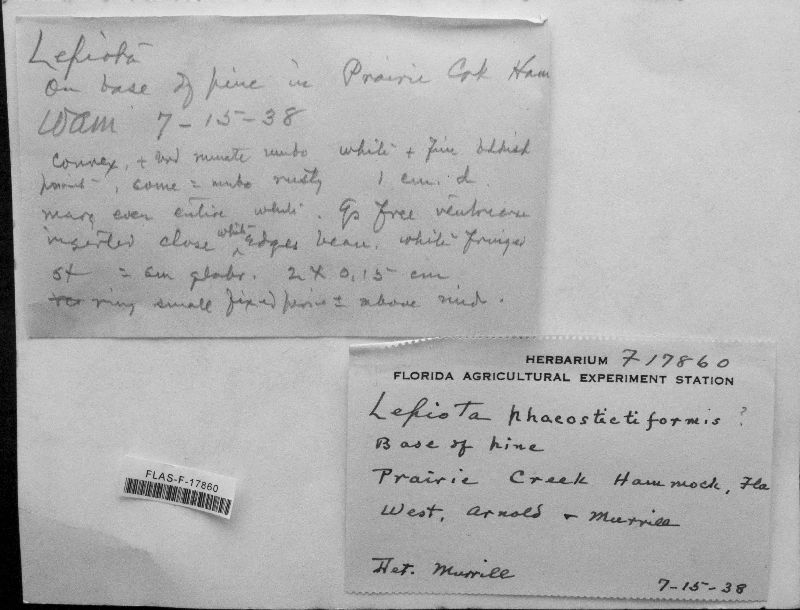 Lepiota
On base of pine in Prairie Crk Ham
WAM 7-15-38
convex, + umbo white + fine
, some = umbo rusty 1 cm. d.
marg even entire white. Gs free ventricose
inserted close white edges beau. white fringed
st = sm glabr. 2 X 0.15 cm
ring small fixed ± above mid.
HERBARIUM F17860
FLORIDA AGRICULTURAL EXPERIMENT STATION
Lepiota phaeostictiformis ?
Base of pine
Prairie Creek Hammock, Fla
West, Arnold & Murrill
Det. Murrill
7-15-38
FLAS-F-17860